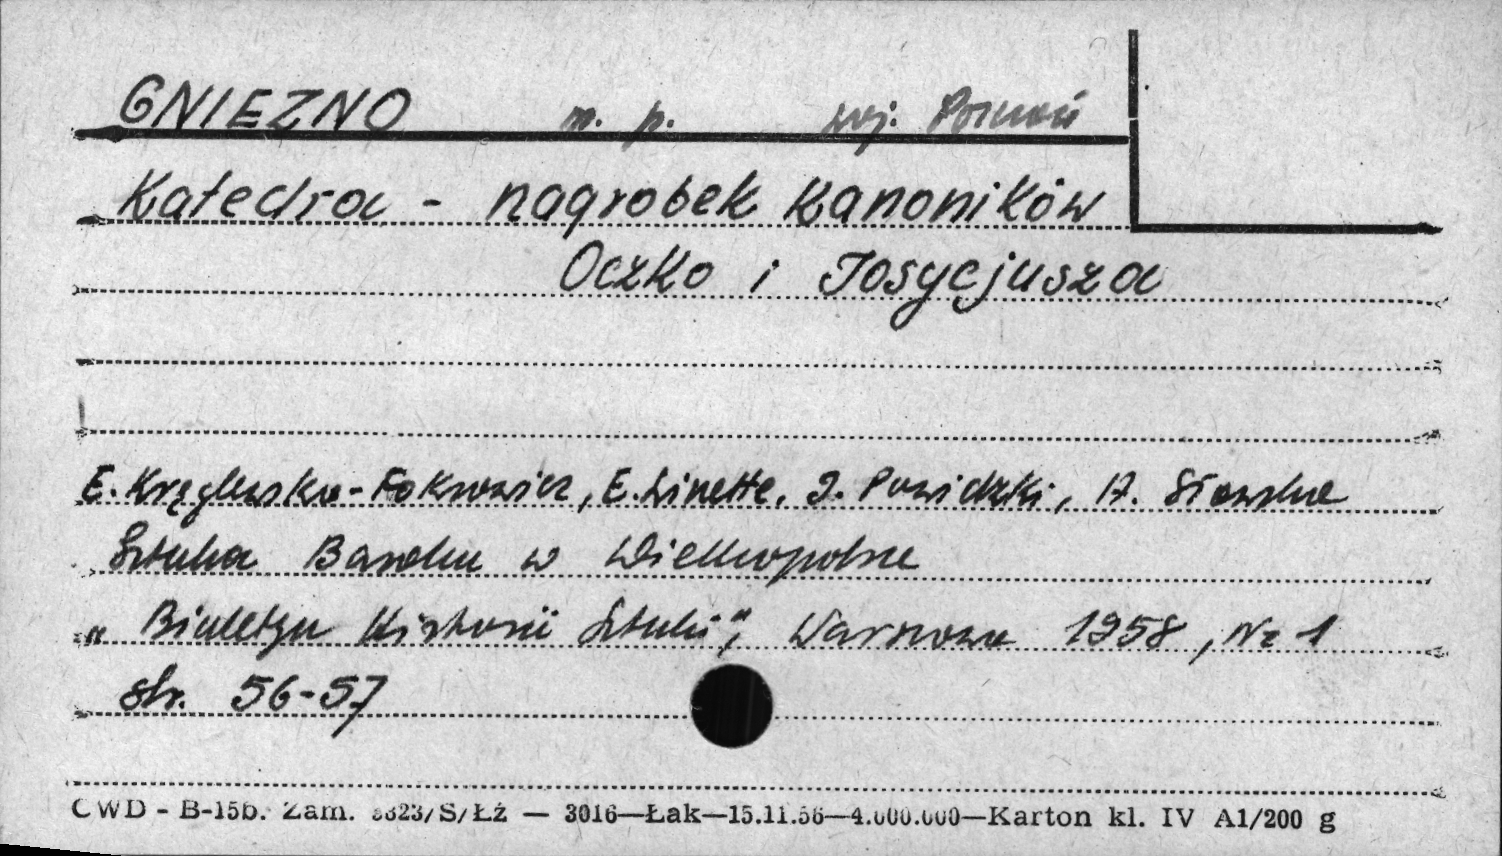 GNIEZNO m. p. woj. Poznań
Katedra - nagrobek Kanoników
Oczko i Josycjusza
E. Kręglewska-Foksowicz, E. Linette, J. Powidzki, A. Sławska
Sztuka Baroku w Wielkopolsce
„Biuletyn Historii Sztuki", Warszawa 1958, Nr 1
str. 56-57
CWD - B-15b. Zam. 8823/S/Łź — 3016—Łak—15.11.56—4.000.000—Karton kl. IV A1/200 g